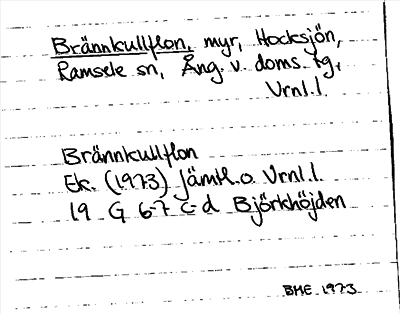 Brännkullflon, myr, Hocksjön,
Ramsele sn, Ång. v. doms. tg,
Vrnl.l.
Brännkullflon
Ek. (1973) Jämtl. o. Vrnl.l.
19 G 6-7 c-d Björkhöjden
BME 1973